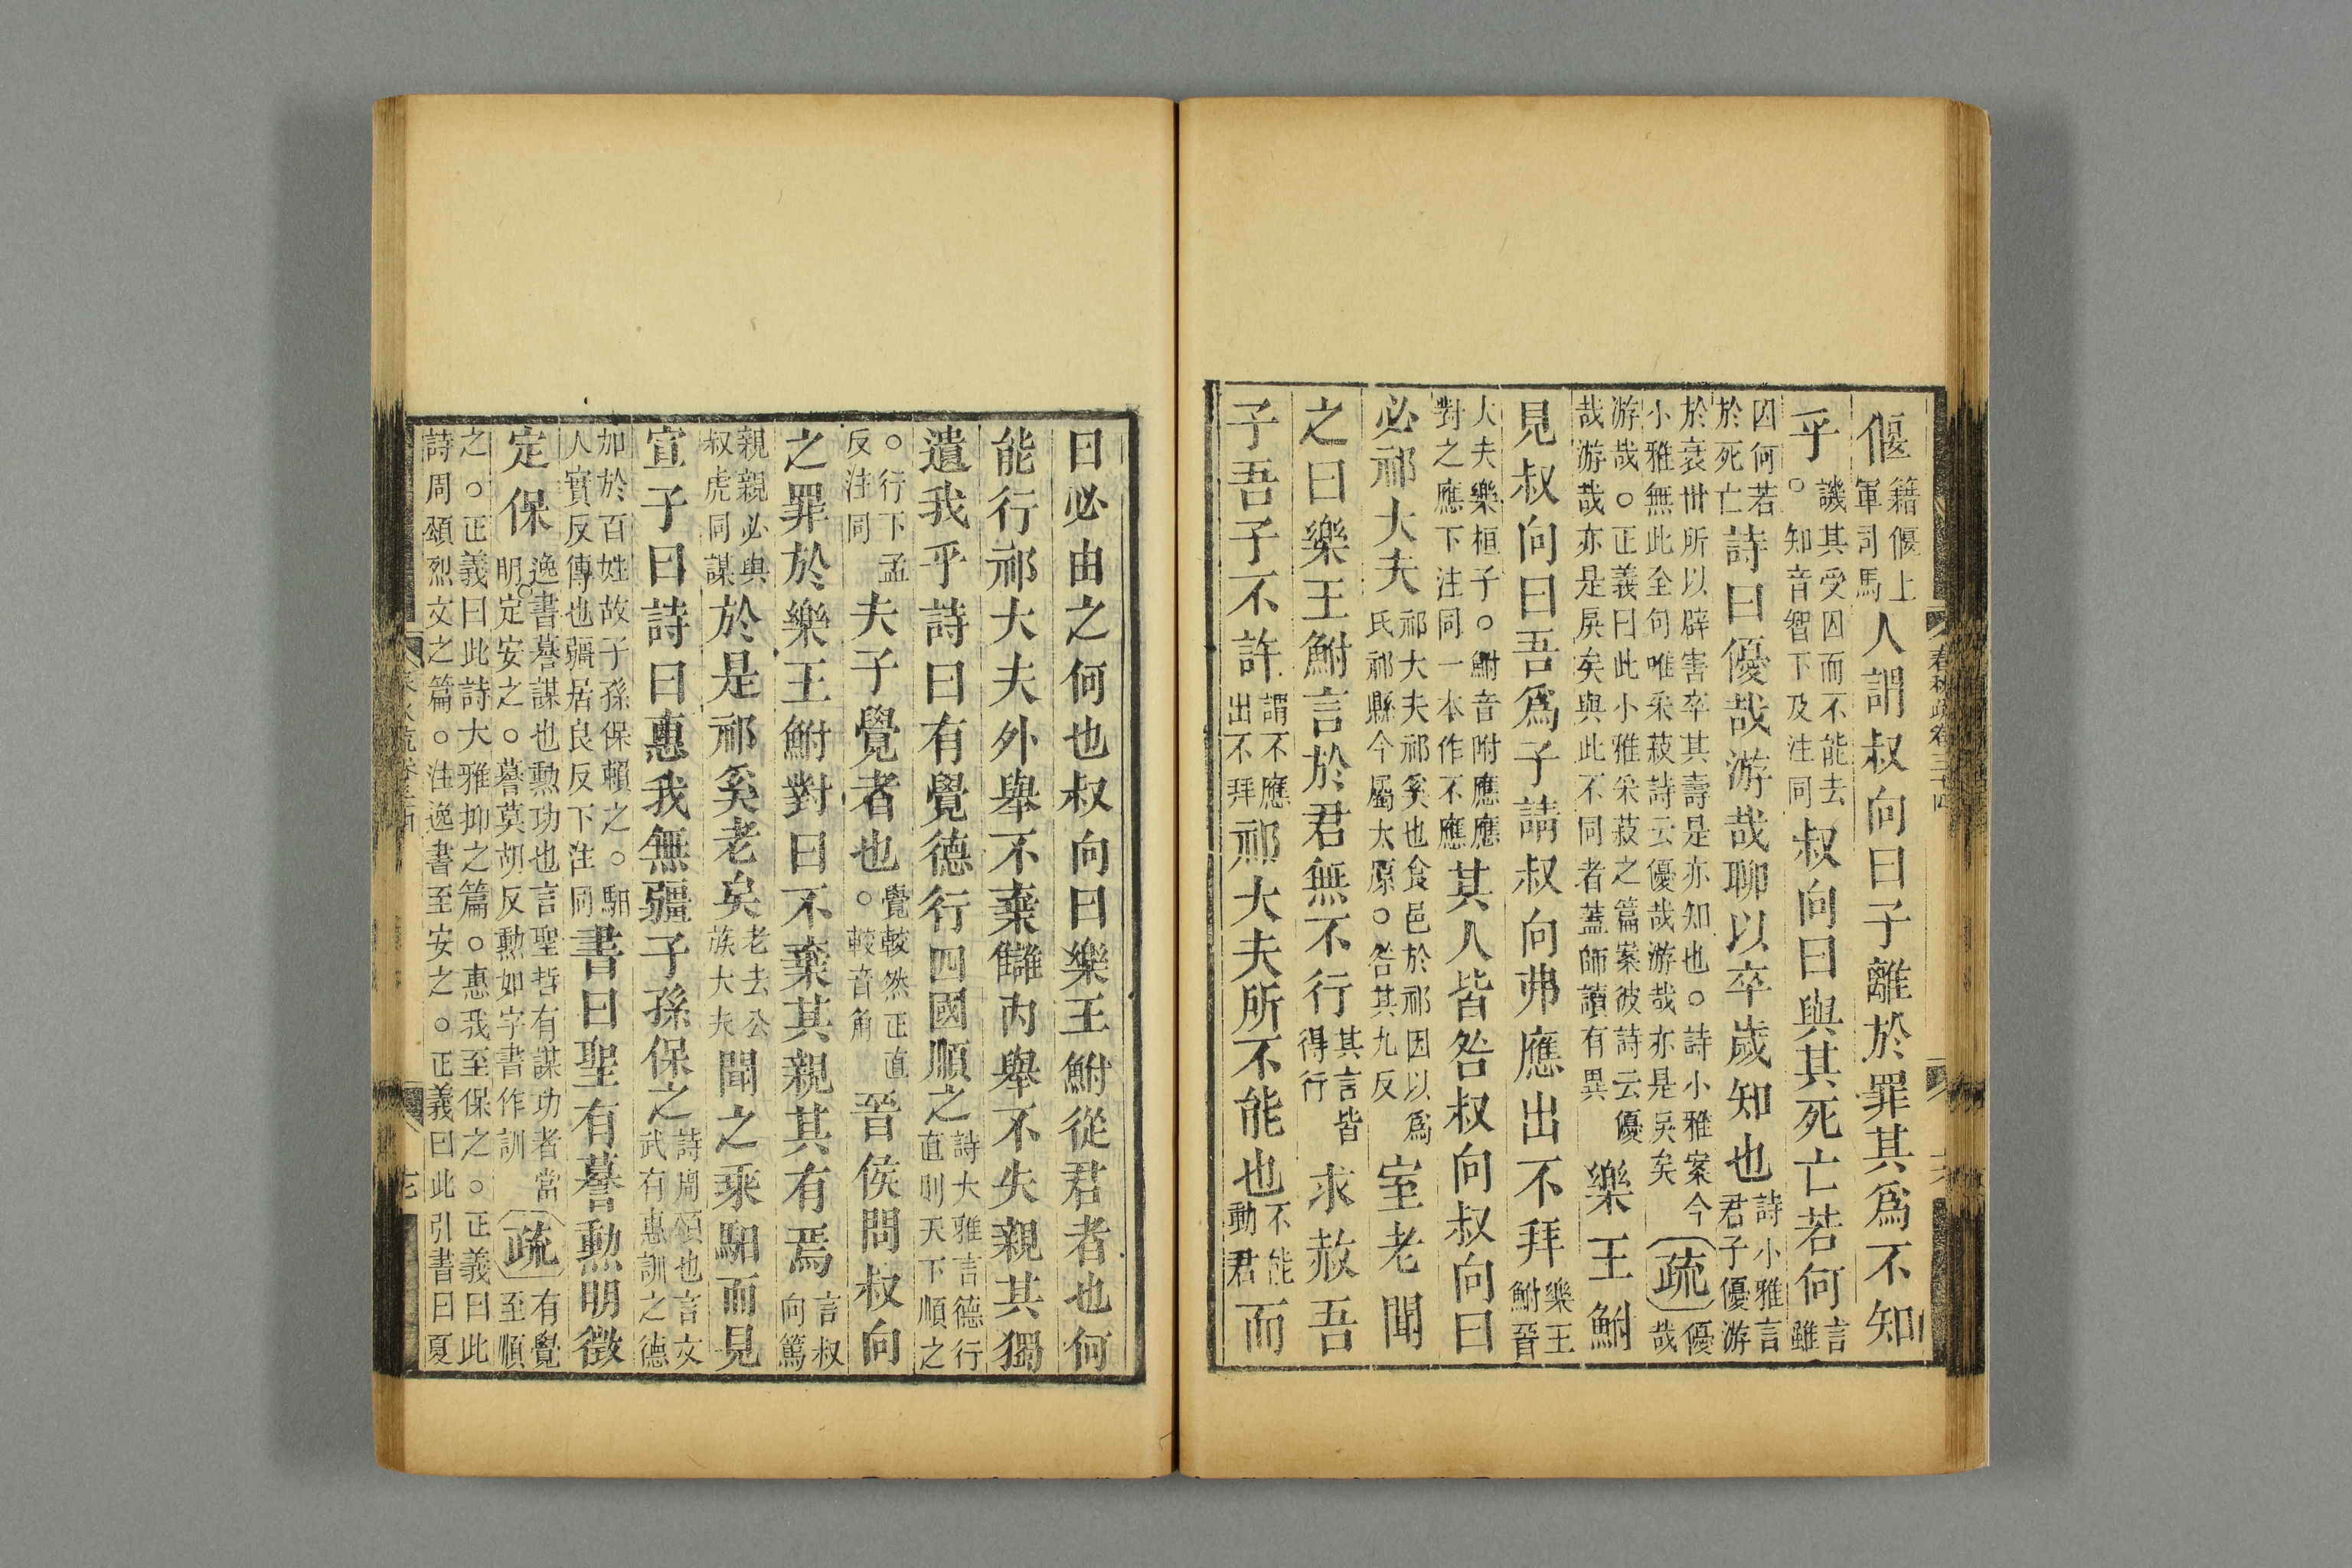 偃籍偃上軍司馬人謂叔向曰子離於罪其爲不知
乎譏其受囚而不能去。知音智下及注同叔向曰與其死亡若何言雖
囚何若於死亡詩曰優哉游哉聊以卒歲知也詩小雅言君子優游
於衰世所以辟害卒其壽是亦知也。詩小雅案今小雅無此全句唯采菽詩云優哉游哉亦是戾矣疏優哉
游哉。正義曰此小雅采菽之篇案彼詩云優哉游哉亦是戾矣與此不同者蓋師讀有異樂王鮒
見叔向曰吾爲子請叔向弗應出不拜樂王鮒晉
大夫樂桓子。鮒音附應應對之應下注同一本作不應其人皆咎叔向叔向曰
必祁大夫祁大夫祁奚也食邑於祁因以爲氏祁縣今屬太原。咎其九反室老聞
之曰樂王鮒言於君無不行其言皆得行求赦吾
子吾子不許謂不應出不拜祁大夫所不能也不能動君而
曰必由之何也叔向曰樂王鮒從君者也何
能行祁大夫外舉不棄讎內舉不失親其獨
遺我乎詩曰有覺德行四國順之詩大雅言德行直則天下順之
。行下孟反注同夫子覺者也覺較然正直。較音角晉侯問叔向
之罪於樂王鮒對曰不棄其親其有焉言叔向篤
親親必與叔虎同謀於是祁奚老矣老去公族大夫聞之乘馹而見
宣子曰詩曰惠我無疆子孫保之詩周頌也言文武有惠訓之德
加於百姓故子孫保賴之。馹人實反傳也疆居良反下注同書曰聖有謩勳明徵
定保逸書謩謀也勳功也言聖哲有謀功者當明定安之。謩莫胡反勳如字書作訓疏有覺至順
之。正義曰此詩大雅抑之篇。惠我至保之。正義曰此詩周頌烈文之篇。注逸書至安之。正義曰此引書曰夏